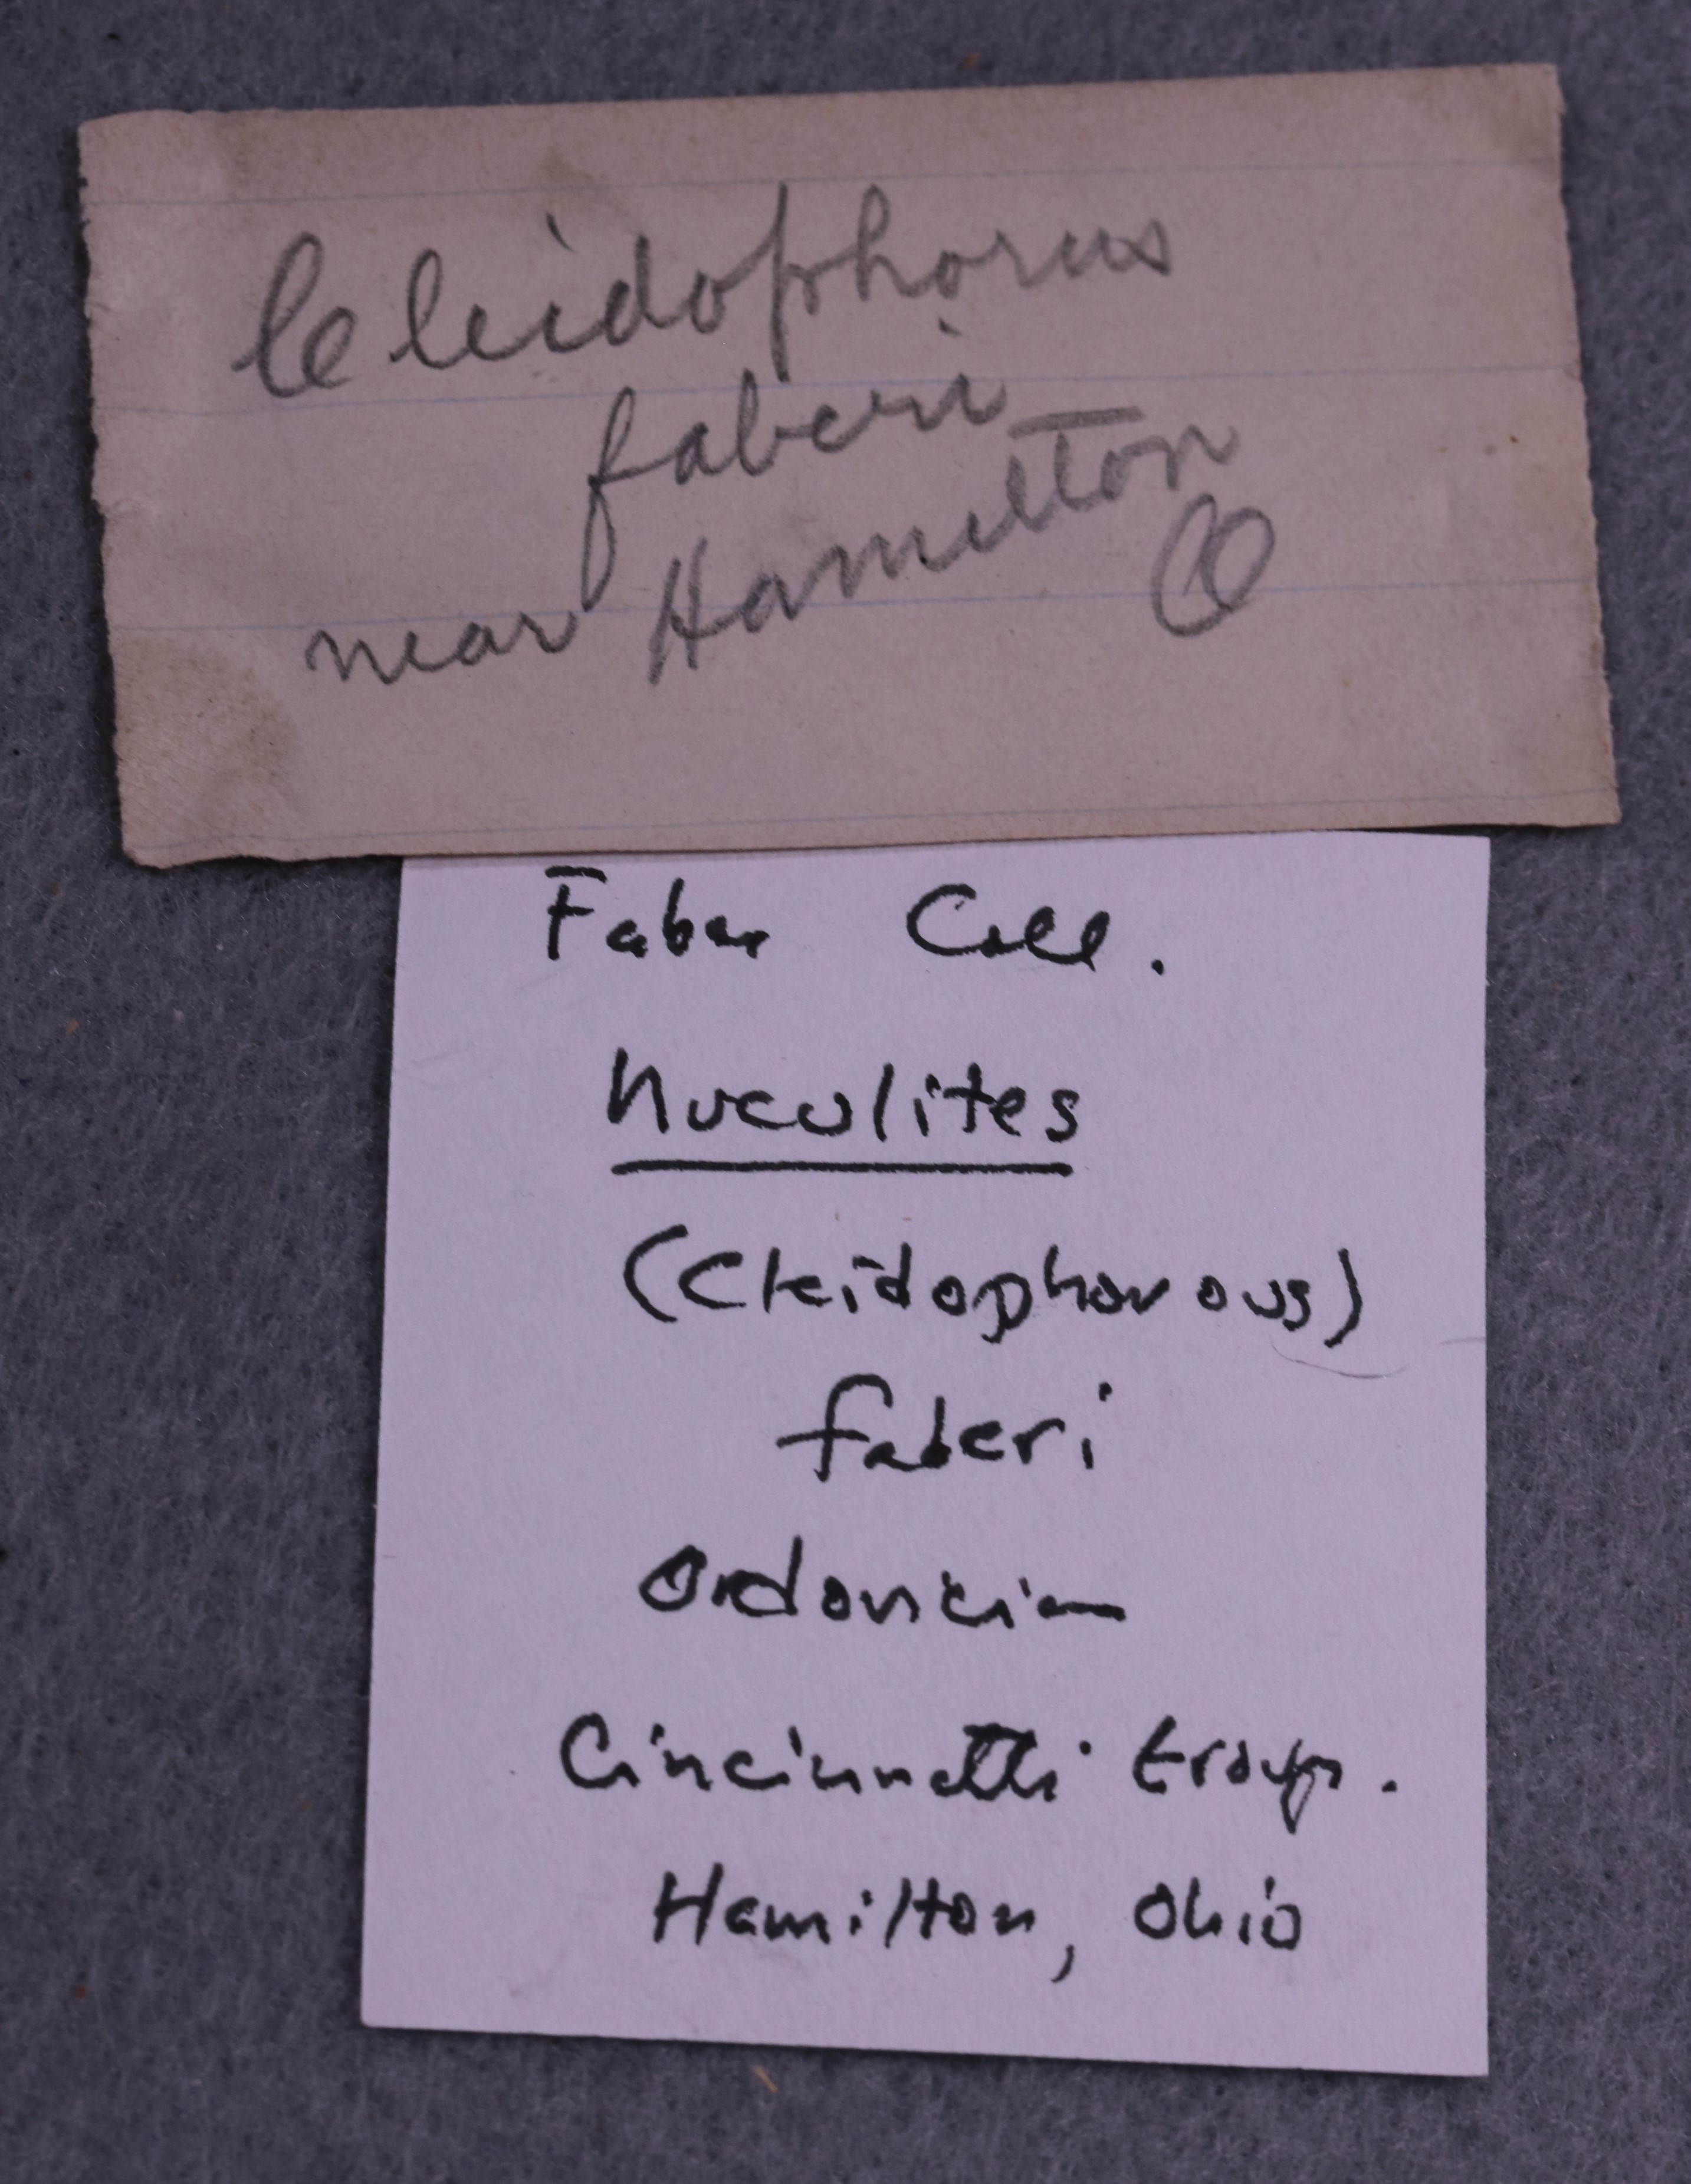 Cleidophorus
faberi
near Hamilton
O
Faber Coll.
Nuculites
(Cleidophorous)
faberi
Ordovician
Cincinnatti Group.
Hamilton, Ohio